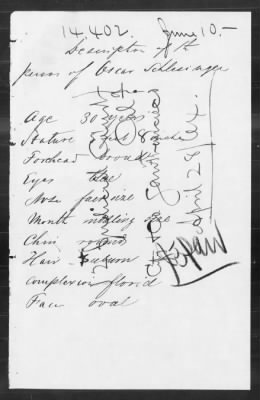 14.402. June 10.-
Description of the
person of Oscar Schlesinger
Age 30 years
Stature 5 feet 8 inch
Forehead broad
Eyes blue
Nose fair size
Mouth middling size
Chin round
Hair auburn
complexion florid
Face oval
San Francisco
April 28/84.